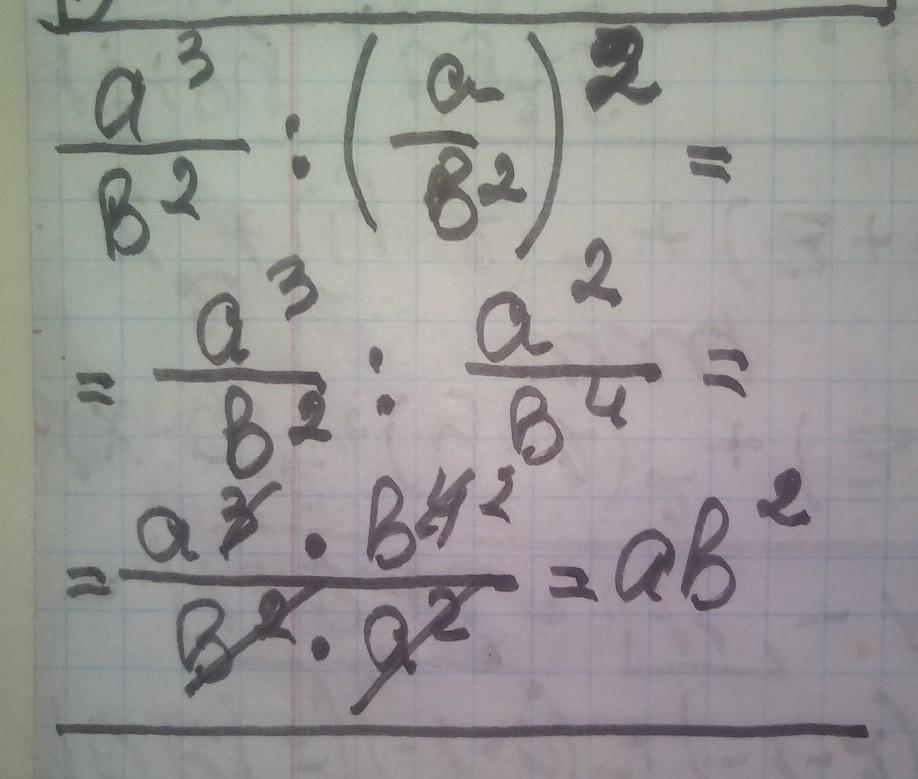 a³/B² : (a/B²)² =
= a³/B² : a²/B⁴ =
= a³ · B⁴ ² / B² · a² = aB²